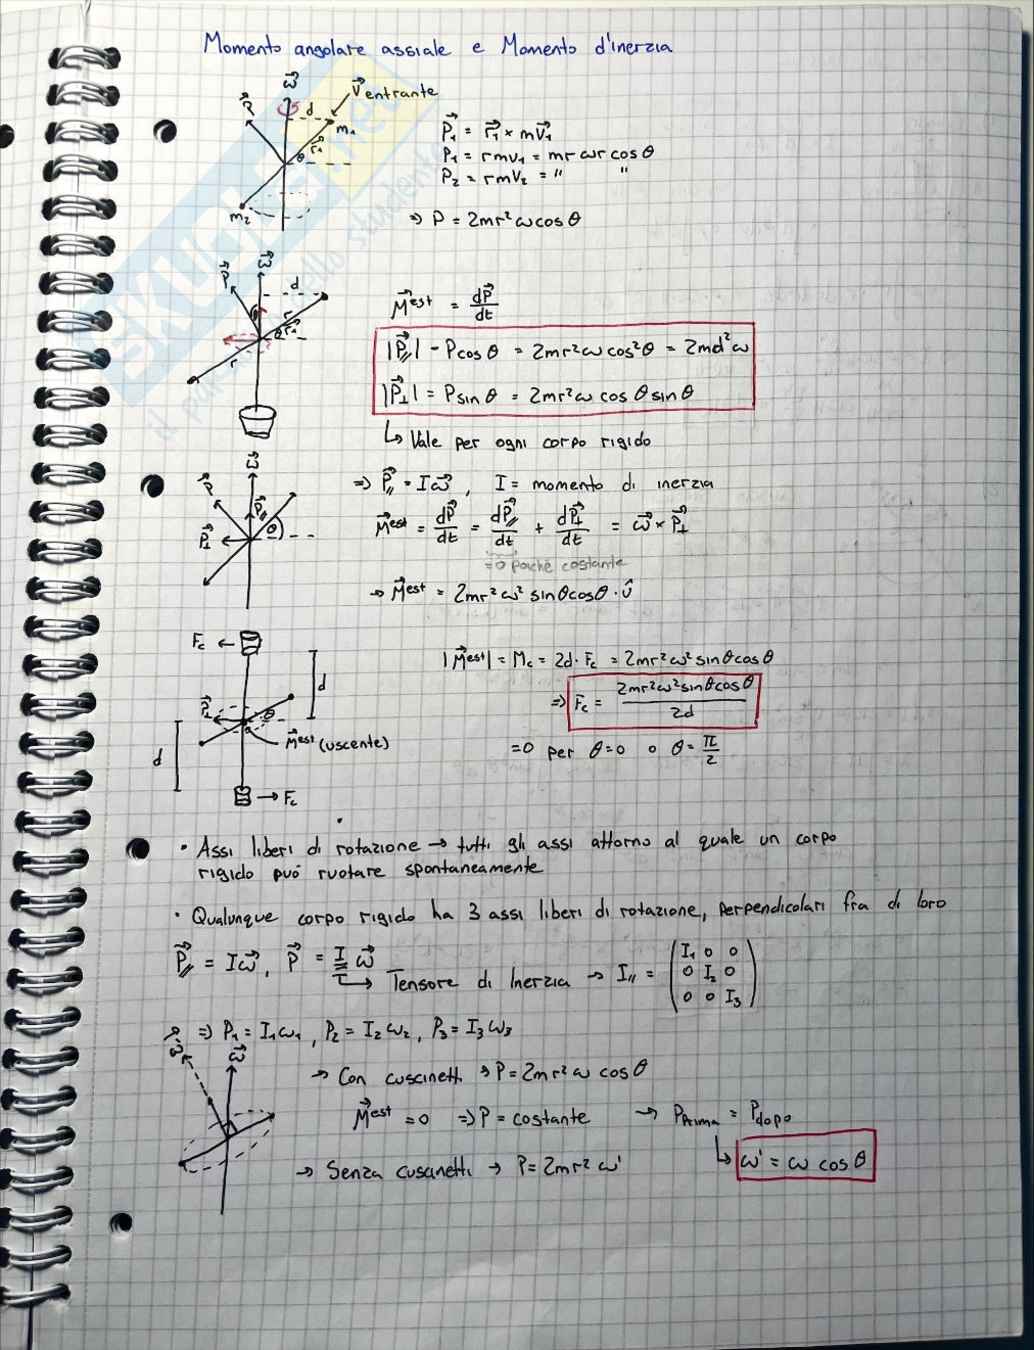 Momento angolare assiale e Momento d'inerzia
ω⃗
P⃗
d
V⃗ entrante
m₁
r⃗₁
θ
m₂
P⃗₁ = r⃗₁ × mV⃗₁
P₁ = rmv₁ = mr ωr cos θ
P₂ = rmV₂ = " "
⇒ P = 2mr²ω cos θ
ω⃗
P⃗
d
θ
r
r⃗₁
θ
r
M⃗ᵉˢᵗ = dP⃗/dt
|P⃗∥| - P cos θ = 2mr²ω cos²θ = 2md²ω
|P⃗⊥| = P sin θ = 2mr²ω cos θ sin θ
↳ Vale per ogni corpo rigido
ω⃗
P⃗
P⃗∥
P⃗⊥
θ
⇒ P⃗∥ = Iω⃗, I = momento di inerzia
M⃗ᵉˢᵗ = dP⃗/dt = dP⃗∥/dt + dP⃗⊥/dt = ω⃗ × P⃗⊥
=0 poiché costante
→ M⃗ᵉˢᵗ = 2mr²ω² sinθcosθ · û
Fc ←
d
P⃗⊥
θ
M⃗ᵉˢᵗ (uscente)
d
→ Fc
|M⃗ᵉˢᵗ| = Mc = 2d · Fc = 2mr²ω² sinθ cosθ
⇒ Fc = 2mr²ω²sinθcosθ / 2d
=0 per θ=0 o θ=π/2
• Assi liberi di rotazione → tutti gli assi attorno al quale un corpo
rigido può ruotare spontaneamente
• Qualunque corpo rigido ha 3 assi liberi di rotazione, perpendicolari fra di loro
P⃗∥ = Iω⃗, P⃗ = I ω⃗
↳ Tensore di Inerzia → I∥ = (I₁ 0 0
0 I₂ 0
0 0 I₃)
⇒ P₁ = I₁ω₁, P₂ = I₂ω₂, P₃ = I₃ω₃
ω⃗
→ Con cuscinetti → P = 2mr²ω cos θ
M⃗ᵉˢᵗ = 0 ⇒ P = costante → Pprima = Pdopo
↳ ω' = ω cos θ
→ Senza cuscinetti → P = 2mr²ω'